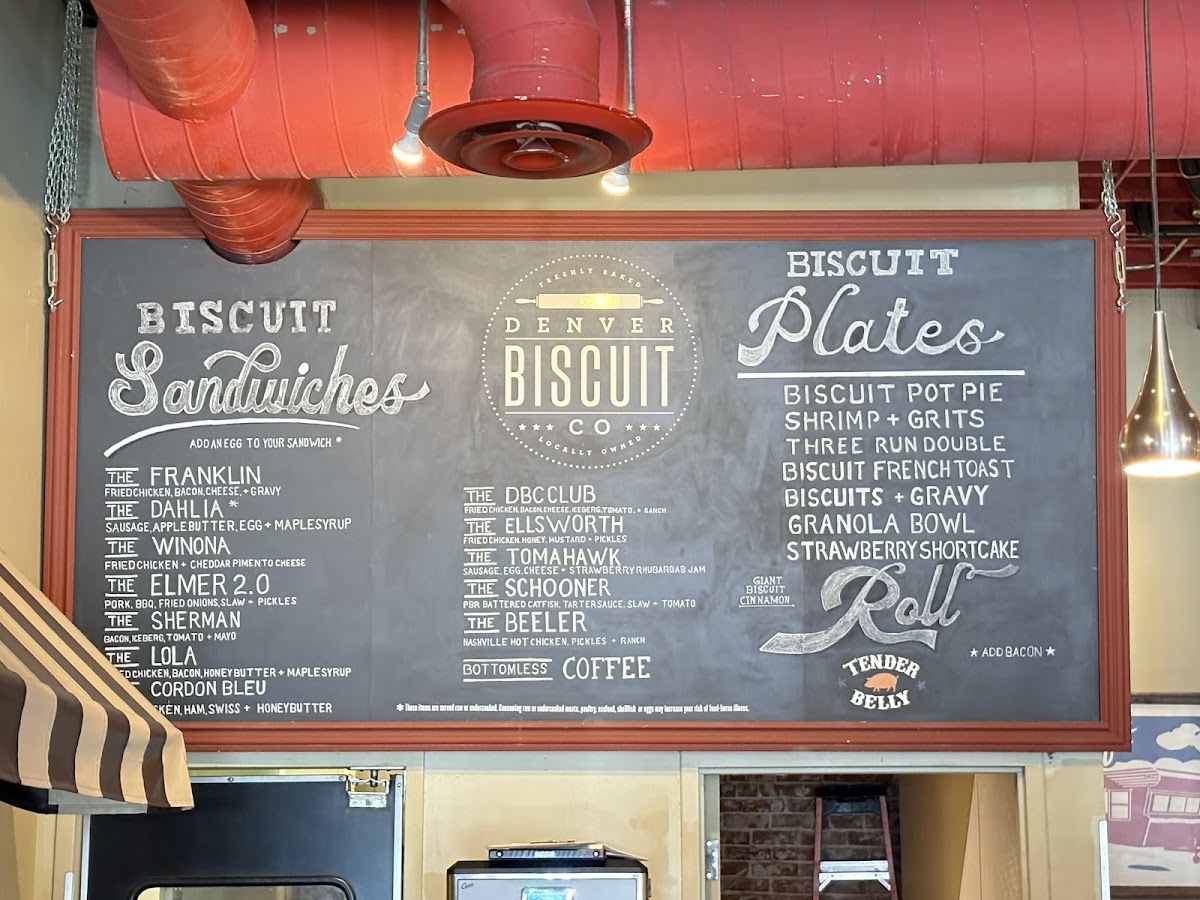 BISCUIT
Sandwiches
ADD AN EGG TO YOUR SANDWICH *
THE FRANKLIN
FRIED CHICKEN, BACON, CHEESE, + GRAVY
THE DAHLIA *
SAUSAGE, APPLE BUTTER, EGG + MAPLE SYRUP
THE WINONA
FRIED CHICKEN + CHEDDAR PIMENTO CHEESE
THE ELMER 2.0
PORK, BBQ, FRIED ONIONS, SLAW + PICKLES
THE SHERMAN
BACON, ICEBERG, TOMATO + MAYO
THE LOLA
CHICKEN, BACON, HONEY BUTTER + MAPLE SYRUP
CORDON BLEU
HAM, SWISS + HONEY BUTTER
FRESHLY BAKED
DENVER
BISCUIT
CO
LOCALLY OWNED
THE DBC CLUB
FRIED CHICKEN, BACON, CHEESE, ICEBERG, TOMATO, + RANCH
THE ELLSWORTH
FRIED CHICKEN, HONEY, MUSTARD + PICKLES
THE TOMAHAWK
SAUSAGE, EGG, CHEESE + STRAWBERRY RHUBARBAB JAM
THE SCHOONER
PBR BATTERED CATFISH, TARTER SAUCE, SLAW + TOMATO
THE BEELER
NASHVILLE HOT CHICKEN, PICKLES + RANCH
BOTTOMLESS COFFEE
* These items are served raw or undercooked. Consuming raw or undercooked meats, poultry, seafood, shellfish or eggs may increase your risk of food-borne illness.
BISCUIT
Plates
BISCUIT POT PIE
SHRIMP + GRITS
THREE RUN DOUBLE
BISCUIT FRENCH TOAST
BISCUITS + GRAVY
GRANOLA BOWL
STRAWBERRY SHORTCAKE
GIANT
BISCUIT
CINNAMON
Roll
* ADD BACON *
TENDER
BELLY